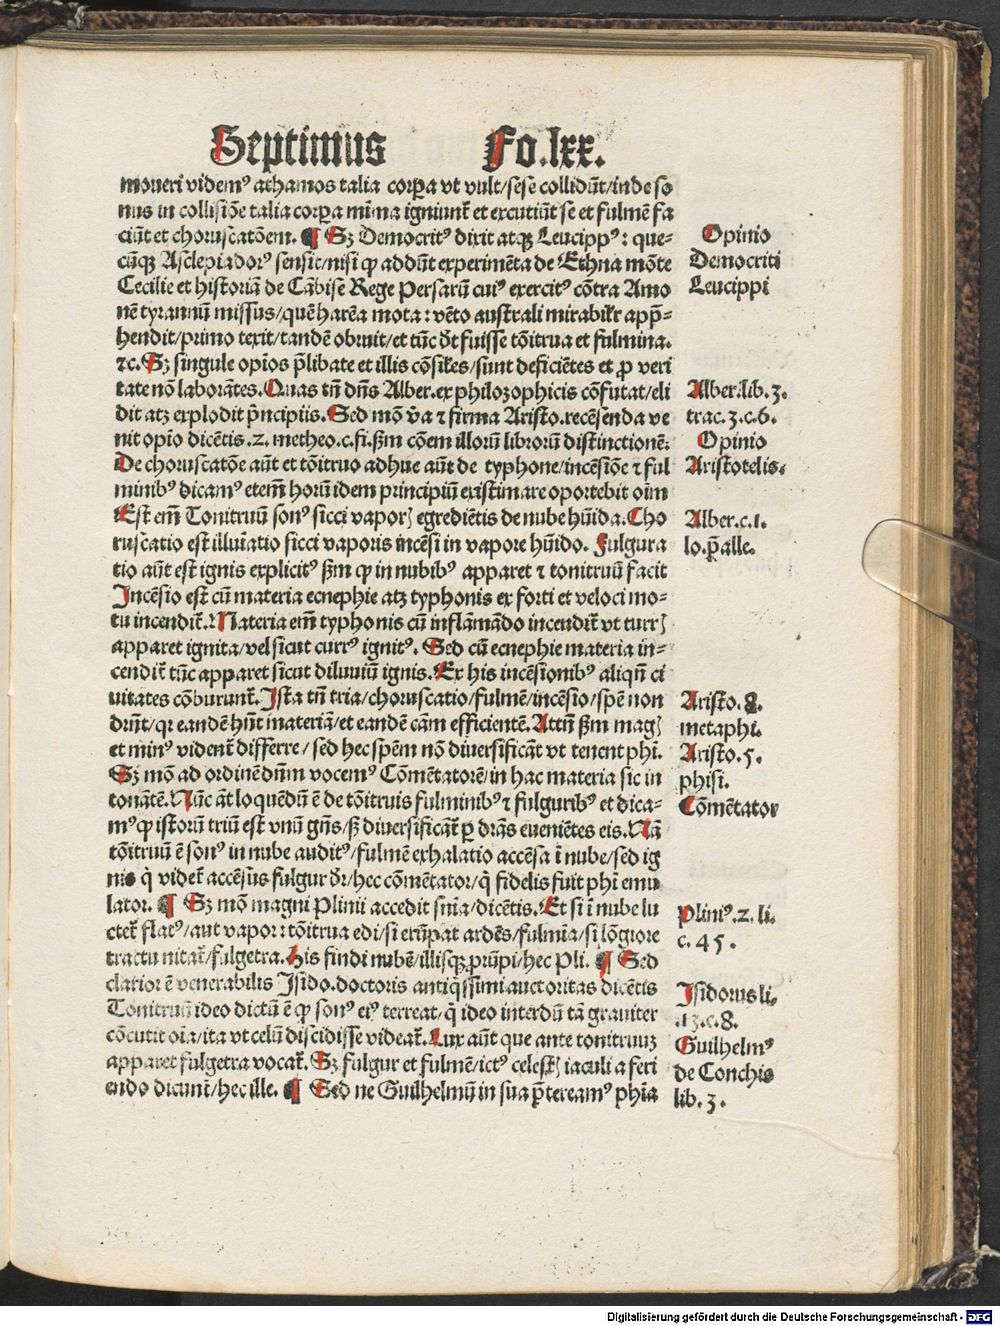 Septimus Fo.lxx.
moueri videmꝰ athamos talia corꝑa vt vult/sese collidūt/inde so
nus in collisiōe talia corꝑa mīma igniunt̄ et excutiūt se et fulmē fa
ciūt et choruscatōem. ¶ Sꝫ Democritꝰ dixit atqꝫ Leucippꝰ: que⸗
cūqꝫ Asclepiadorꝰ sensit/nisi ꝙ addūt experimēta de Ethna mōte
Cecilie et historiā de Cābise Rege Persarū cuiꝰ exercitꝰ cōtra Amo
nē tyrannū missus/quē harēa mota: vēto australi mirabilr̄ app̄⸗
hendit/primo texit/tandē obruit/et tūc dr̄t fuisse tōitrua et fulmina.
ꝛc. Sꝫ singule opīos p̄libate et illis cōsiles/sunt deficiētes et ꝓ veri
tate nō laborātes. Quas tn̄ dn̄s Alber. ex philozophicis cōfutat/eli
dit atꝫ explodit p̄ncipiis. Sed mō v̄a ⁊ firma Aristo. recēsenda ve
nit opīo dicētis .2. metheo.c.fi. ẜm cōem illorū librorū distinctionē:
De choruscatōe aūt et tōitruo adhuc aūt de typhone/incēsiōe ⁊ ful
minibꝰ dicamꝰ etem̄ horū idem principiū existimare oportebit oīm
Est em̄ Tonitruū sonꝰ sicci vaporꝭ egrediētis de nube hūida. Cho
ruscatio est illuīatio sicci vaporis incēsi in vapore hūido. Fulgura
tio aūt est ignis explicitꝰ ẜm ꝙ in nubibꝰ apparet ⁊ tonitruū facit
Incēsio est cū materia ecnephie atꝫ typhonis ex forti et veloci mo⸗
tu incendit̄. Materia em̄ typhonis cū inflāmādo incendit̄ vt turrꝭ
apparet ignita/vel sicut currꝰ ignitꝰ. Sed cū ecnephie materia in⸗
cendit̄ tūc apparet sicut diluuiū ignis. Ex his incēsionibꝰ aliqn̄ ci
uitates cōburunt̄. Ista tn̄ tria/choruscatio/fulmē/incēsio/spē non
drn̄t/qꝛ eandē hn̄t materiā/et eandē cām efficientē. Attn̄ ẜm magꝭ
et minꝰ vident̄ differre/sed hec spēm nō diuersificāt vt tenent phī.
Sꝫ mō ad ordinēdum vocemꝰ Cōmētatorē/in hac materia sic in
tonātē. Nūc āt loquēdū ē de tōitruis fulminibꝰ ⁊ fulguribꝰ et dica⸗
mꝰ ꝙ istorū triū est vnū gn̄s/ẜ diuersificāt̄ ꝑ drās euenīētes eis. Nā
tōitruū ē sonꝰ in nube auditꝰ/fulmē exhalatio accēsa ī nube/sed ig
nis q̇ videt̄ accēsus fulgur dr̄: hec cōmētator/q̇ fidelis fuit phī emu
lator. ¶ Sꝫ mō magni Plinii accedit snīa/dicētis. Et si ī nube lu
ctet̄ flatꝰ/aut vapor: tōitrua edi/si erūpat ardēs/fulmīa/si lōgiore
tractu nitat̄/fulgetra. His findi nubē/illisqꝫ ꝑrūpi/hec Pli. ¶ Sed
clarior ē venerabilis Isido. doctoris antiq̇ssimi auctoritas dicētis
Tonitruū ideo dictū ē ꝙ sonꝰ eiꝰ terreat/q̇ ideo interdū tā grauiter
cōcutit oīa/ita vt celū discidisse videat̄. Lux aūt que ante tonitruuꝫ
apparet fulgetra vocat̄. Sꝫ fulgur et fulmē/ictꝰ celestꝭ iaculi a feri
endo dicunt̄/hec ille. ¶ Sed ne Guilhelmū in sua p̄tereamꝰ phīa
Opinio
Democriti
Leucippi
Alber.lib.3.
trac.3.c.6.
Opinio
Aristotelis.
Alber.c.1.
lo.p̄alle.
Aristo.8.
metaphi.
Aristo.5.
phisi.
Cōmētator
Pliniꝰ.2.li.
c.45.
Isidorus li.
13.c.8.
Guilhelmꝰ
de Conchis
lib.3.
Digitalisierung gefördert durch die Deutsche Forschungsgemeinschaft - DFG